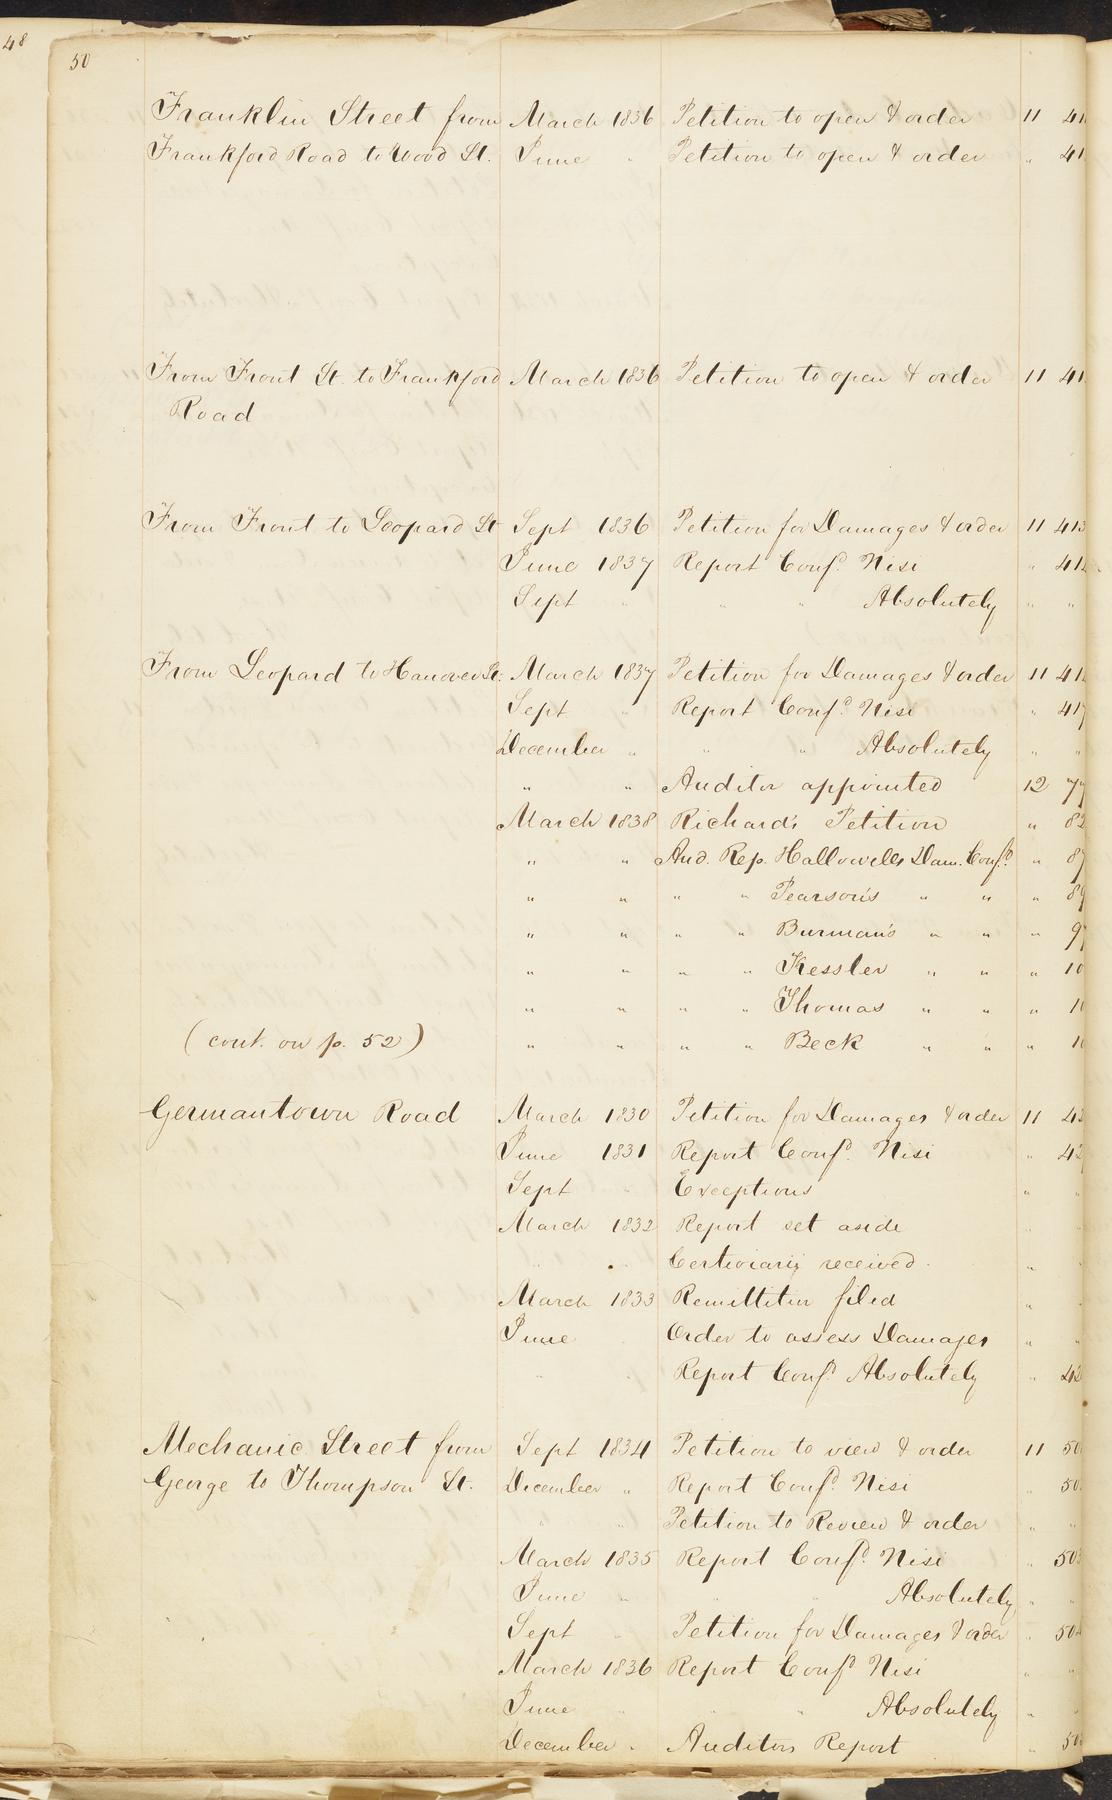 48
50
Franklin Street from March 1836 Petition to open & order 11 41
Frankford Road to Wood St. June " Petition to open & order " 41
From Front St. to Frankford March 1836 Petition to open & order 11 41
Road
From Front to Leopard St Sept 1836 Petition for Damages & order 11 413
June 1837 Report Confd. Nisi " 41
Sept " " " Absolutely " "
From Leopard to Hanover St. March 1837 Petition for Damages & order 11 41
Sept " Report Confd. Nisi " 417
December " " " Absolutely " "
" " Auditor appointed 12 77
March 1838 Richards Petition " 82
" " Aud. Rep. Hallowells Dam. Confd. " 87
" " " " Pearson's " " " 89
" " " " Burman's " " " 9
" " " " Kessler " " " 10
" " " " Thomas " " " 1
(cont. on p. 52) " " " " Beck " " " 1
Germantown Road March 1830 Petition for Damages & order 11 42
June 1831 Report Confd. Nisi " 42
Sept " Exceptions " "
March 1832 Report set aside
" " Certiorari received. "
March 1833 Remittitur filed "
June Order to assess Damages " "
" " Report Confd. Absolutely " 42
Mechanic Street from Sept 1834 Petition to view & order 11 50
George to Thompson St. December " Report Confd. Nisi " 50
" " Petition to Review & order " "
March 1835 Report Confd. Nisi " 503
June " " " Absolutely " "
Sept " Petition for Damages & order " 504
March 1836 Report Confd Nisi " "
June " " " Absolutely " "
December " Auditors Report " 50